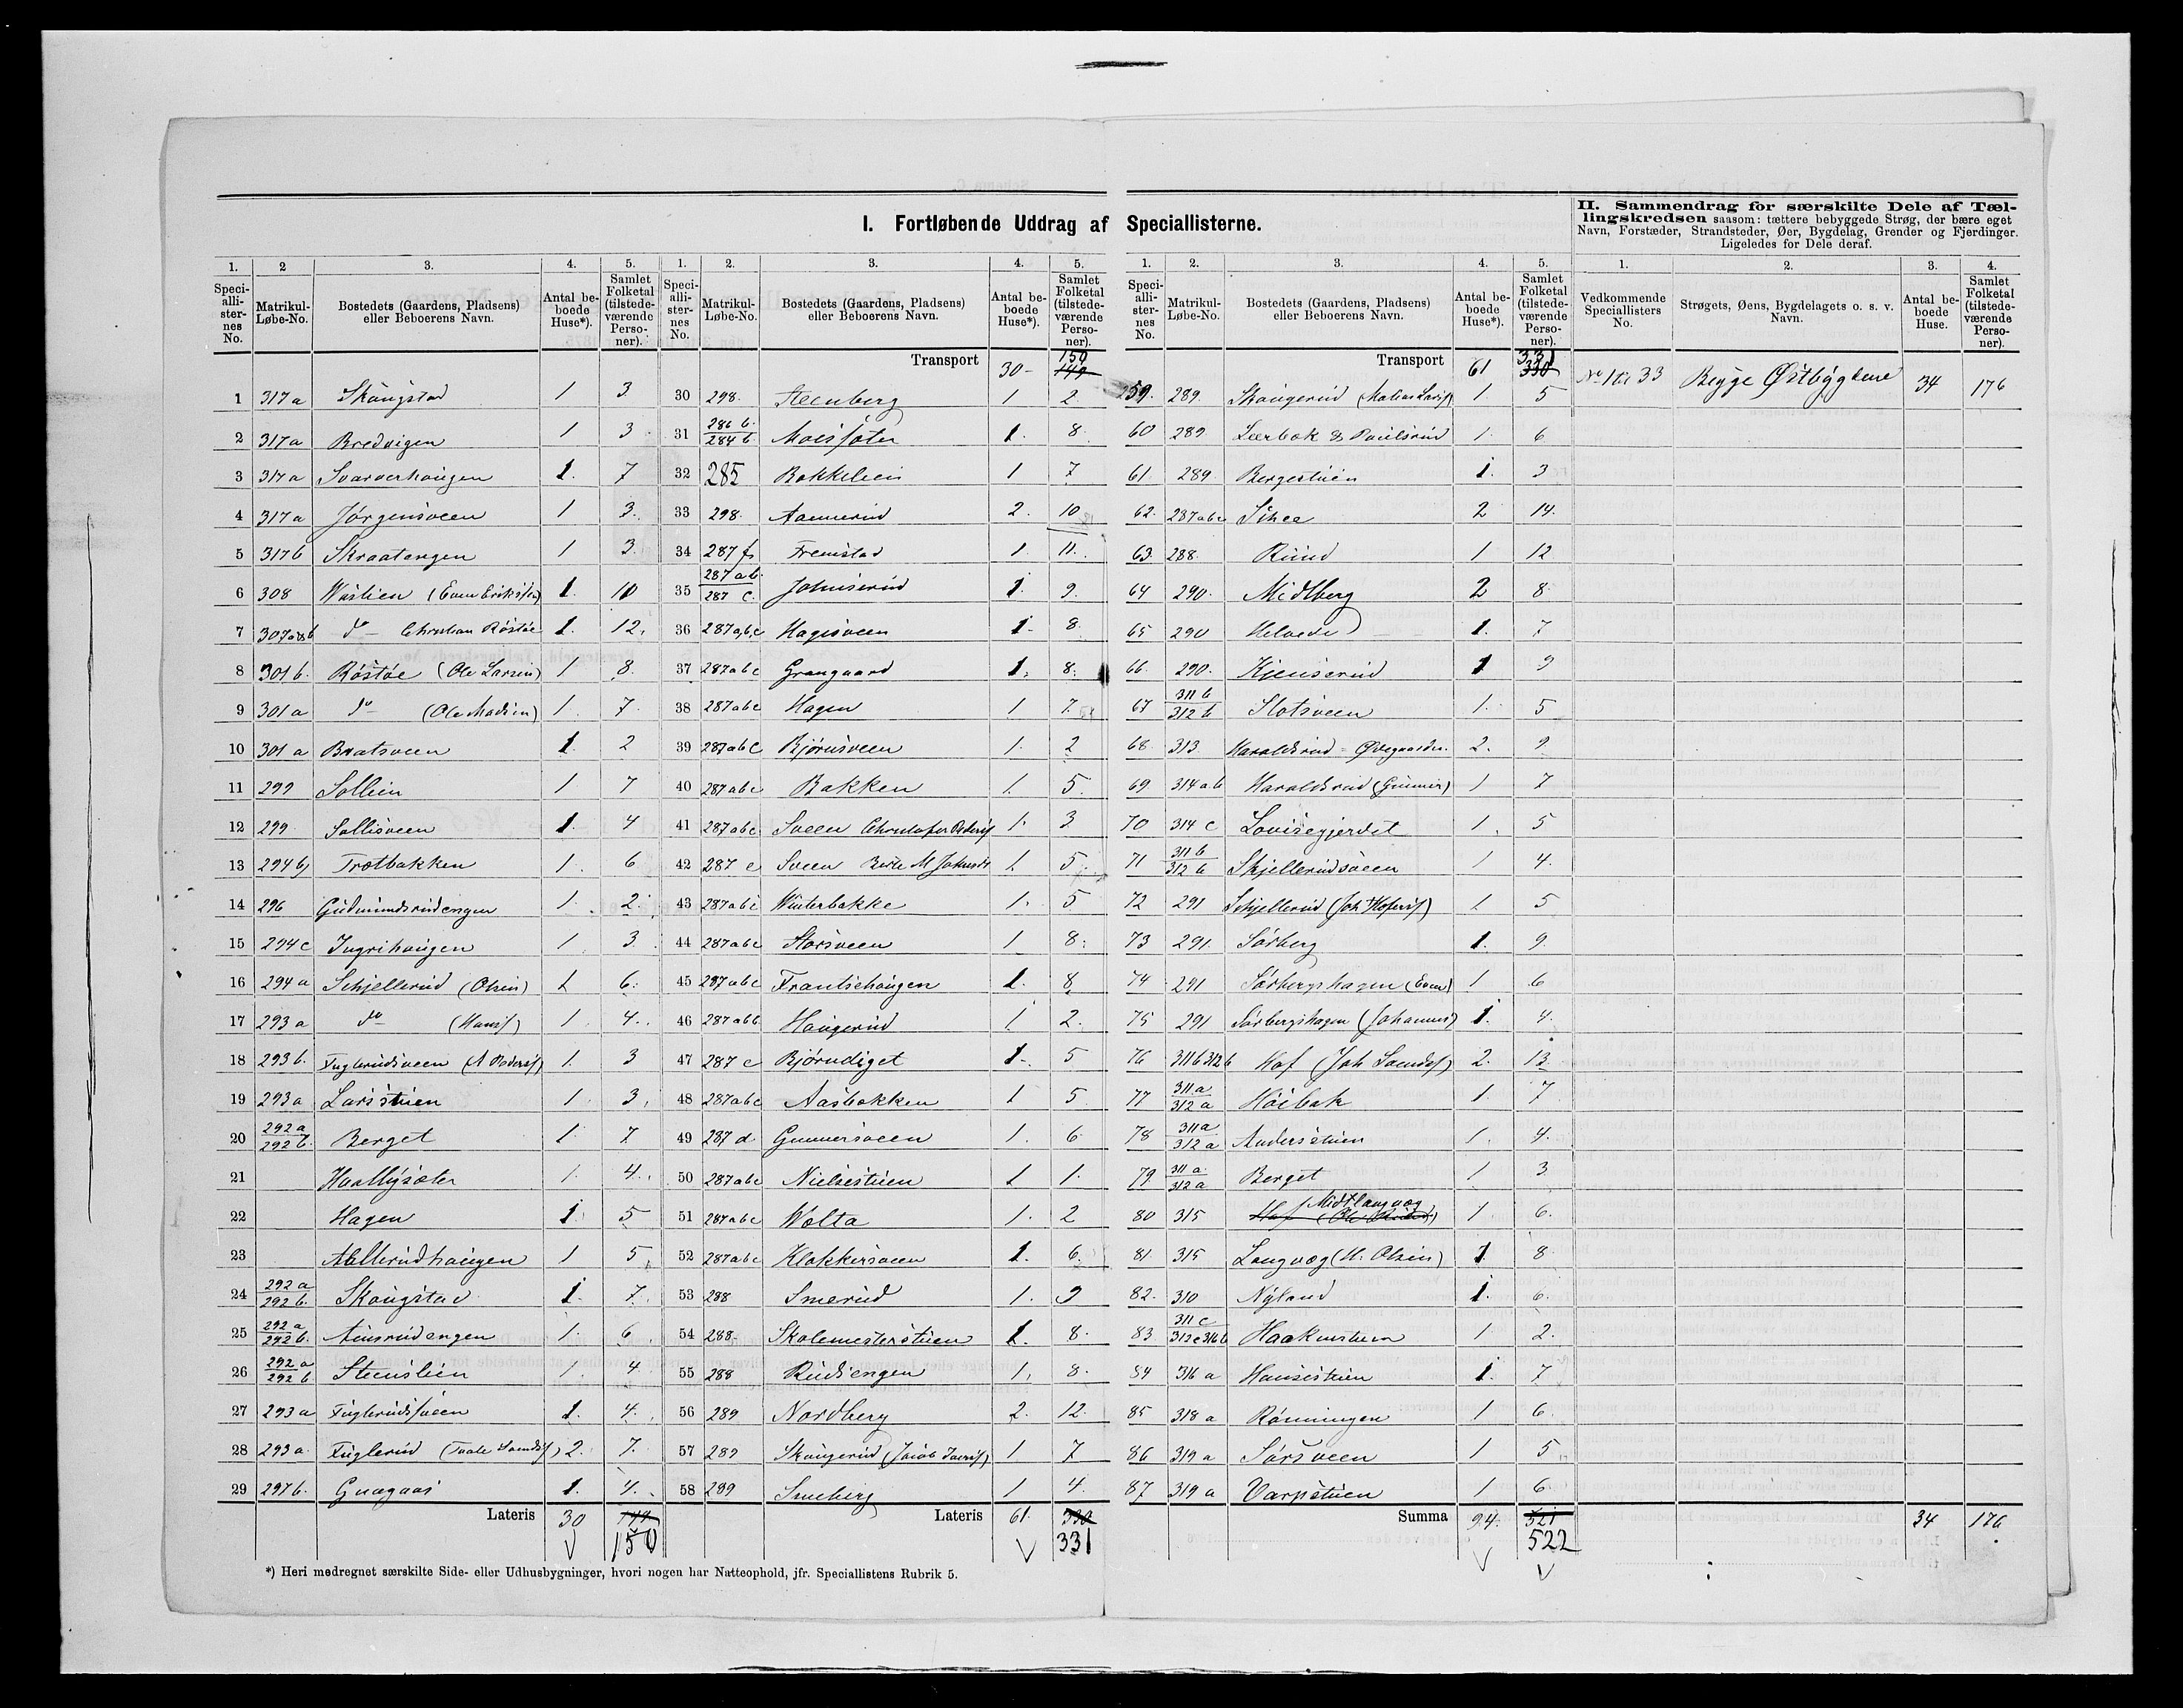 I. Fortløbende Uddrag af Speciallisterne.
II. Sammendrag for særskilte Dele af Tællingskredsen saasom: tættere bebyggede Strøg, der bære eget
Navn, Forstæder, Strandsteder, Øer, Bygdelag, Grender og Fjerdinger.
Ligeledes for Dele deraf.
1. 2 3. 4. 5.
Speciallisternes No. Matrikul-Løbe-No. Bostedets (Gaardens, Pladsens) eller Beboerens Navn. Antal beboede Huse*). Samlet Folketal (tilstedeværende Personer).
1 317a Skaugstad 1 3
2 317a Bredvigen 1 3
3 317a Svarverhaugen 1. 7
4 317a Jörgensveen 1 3.
5 317b Skraatangen 1 3.
6 308 Waslien (Even Eriksen) 1. 10
7 307a&b do Christian Röstöe 1. 12.
8 301b. Röstöe (Ole Larsen) 1 8.
9 301a do (Ole Madsen) 1. 7.
10 301 a Bratsveen 1. 2
11 299 Sollien 1 7
12 299 Sollisveen 1. 4
13 294b Trætbakken 1. 6
14 296 Gudmundsrudengen 1. 2.
15 294c Ingrihaugen 1. 3
16 294a Schjellerud (Olsen) 1 6.
17 293a do (Hans) 1. 4.
18 293b. Fuglerudsveen (A Peders) 1. 3
19 293a Larsstuen 1. 3.
20 292a 292b. Berget 1. 7
21 1. 4.
22 Hagen 1. 5
23 1 5
24 292a 292b. Skaugstad 1. 7.
25 292a 292b. 1. 6
26 292a 292b Steenslien 1. 4
27 293a Fuglerudsveen 1. 4.
28 293a. Fuglerud 2. 7.
29 297b. Guagaas 1. 4.
Lateris 30 149 150
1. 2. 3. 4. 5.
Speciallisternes No. Matrikul-Løbe-No. Bostedets (Gaardens, Pladsens) eller Beboerens Navn. Antal beboede Huse*). Samlet Folketal (tilstedeværende Personer).
Transport 30 150 149
30 298. Steenberg 1 2
31 286 b. 284 b 1. 8
32 285 Bakkelien 1 7
33 298. Aannerud 2. 10
34 287 f Fremstad 1. 11.
35 287 ab. 287 c. Johnserud 1. 9.
36 287a,b,c Hagesveen 1. 8
37 287abc Grangaard 1. 8.
38 287abc Hagen 1 7.
39 287abc Bjørnsveen 1. 2
40 287abc Bakken 1. 5.
41 287abc Sveen Christofer Peders 1. 3
42 287 e Sveen 1 5
43 287abc Winterbakke 1. 5
44 287abc Storsveen 1 8.
45 287abc Frantsehaugen 1. 8.
46 287abc Haugerud 1. 2.
47 287 c Bjørndiget 1. 5
48 287abc Aasbakken 1 5
49 287 d. Gunnersveen 1. 6
50 287abc Nielsestuen 1 1.
51 287abc Wolta 1. 2
52 287abc Klokkersveen 1. 6
53 288 Smerud 1. 9
54 288. Skolemesterstuen 1. 8.
55 288 Rudsengen 1. 8.
56 289 Nordberg 2. 12.
57 289 Skaugerud 1 7
58 289 Smeberg 1 4.
Lateris 61. 330 331
1. 2. 3. 4. 5.
Speciallisternes No. Matrikul-Løbe-No. Bostedets (Gaardens, Pladsens) eller Beboerens Navn. Antal beboede Huse*). Samlet Folketal (tilstedeværende Personer).
Transport 61 331 330
59. 289. Skaugerud 1. 5
60 289 Leerbak & Paulsrud 1. 6
61. 289 Bergestuen 1. 3
62. 287abc 2 14.
63. 288. Ruud 1 12
64 290. Midtberg 2 8
65 290 Helvede 1. 7
66. 290. Kjenserud 1 9
67 311 b 312 b Slotsveen 1. 5
68. 313 Haraldsrud 2. 9
69 314ab Haraldsrud (Gunner) 1 7
70 314 c Lovisegjerdet 1. 5
71 311 b 312 b Skjellerudsveen 1 4.
72 291 Schjellerud 1 5
73 291. Sørberg 1. 9.
74 291 Sørbergshagen (Even) 1 6
75 291 Sørbergshagen (Johannes) 1. 4.
76 311b 312b Hof 2. 13
77 311.a 312 a Høibak 1. 7
78 311a 312 a Andersstuen 1. 4.
79 311 a. 312 a Berget 1 3
80 315 Midtlangvæg 1 6.
81. 315 Langvæg (H. Olsen) 1 8
82. 310 Nyland 1. 6.
83 311 c 312c 316b 1 2.
84 316 a Hansestuen 1. 7
85 318 a Rønningen 1 6
86 319 a Sørsveen 1 5
87 319 a Varpstuen 1 6
Summa 94. 521 522
1. 2. 3. 4.
Vedkommende Speciallisters No. Strøgets, Øens, Bygdelagets o. s. v. Navn. Antal beboede Huse. Samlet Folketal (tilstedeværende Personer).
No 1 til 33 Begge Østbygdene 34 176
34 176
*) Heri medregnet særskilte Side- eller Udhusbygninger, hvori nogen har Natteophold, jfr. Speciallistens Rubrik 5.